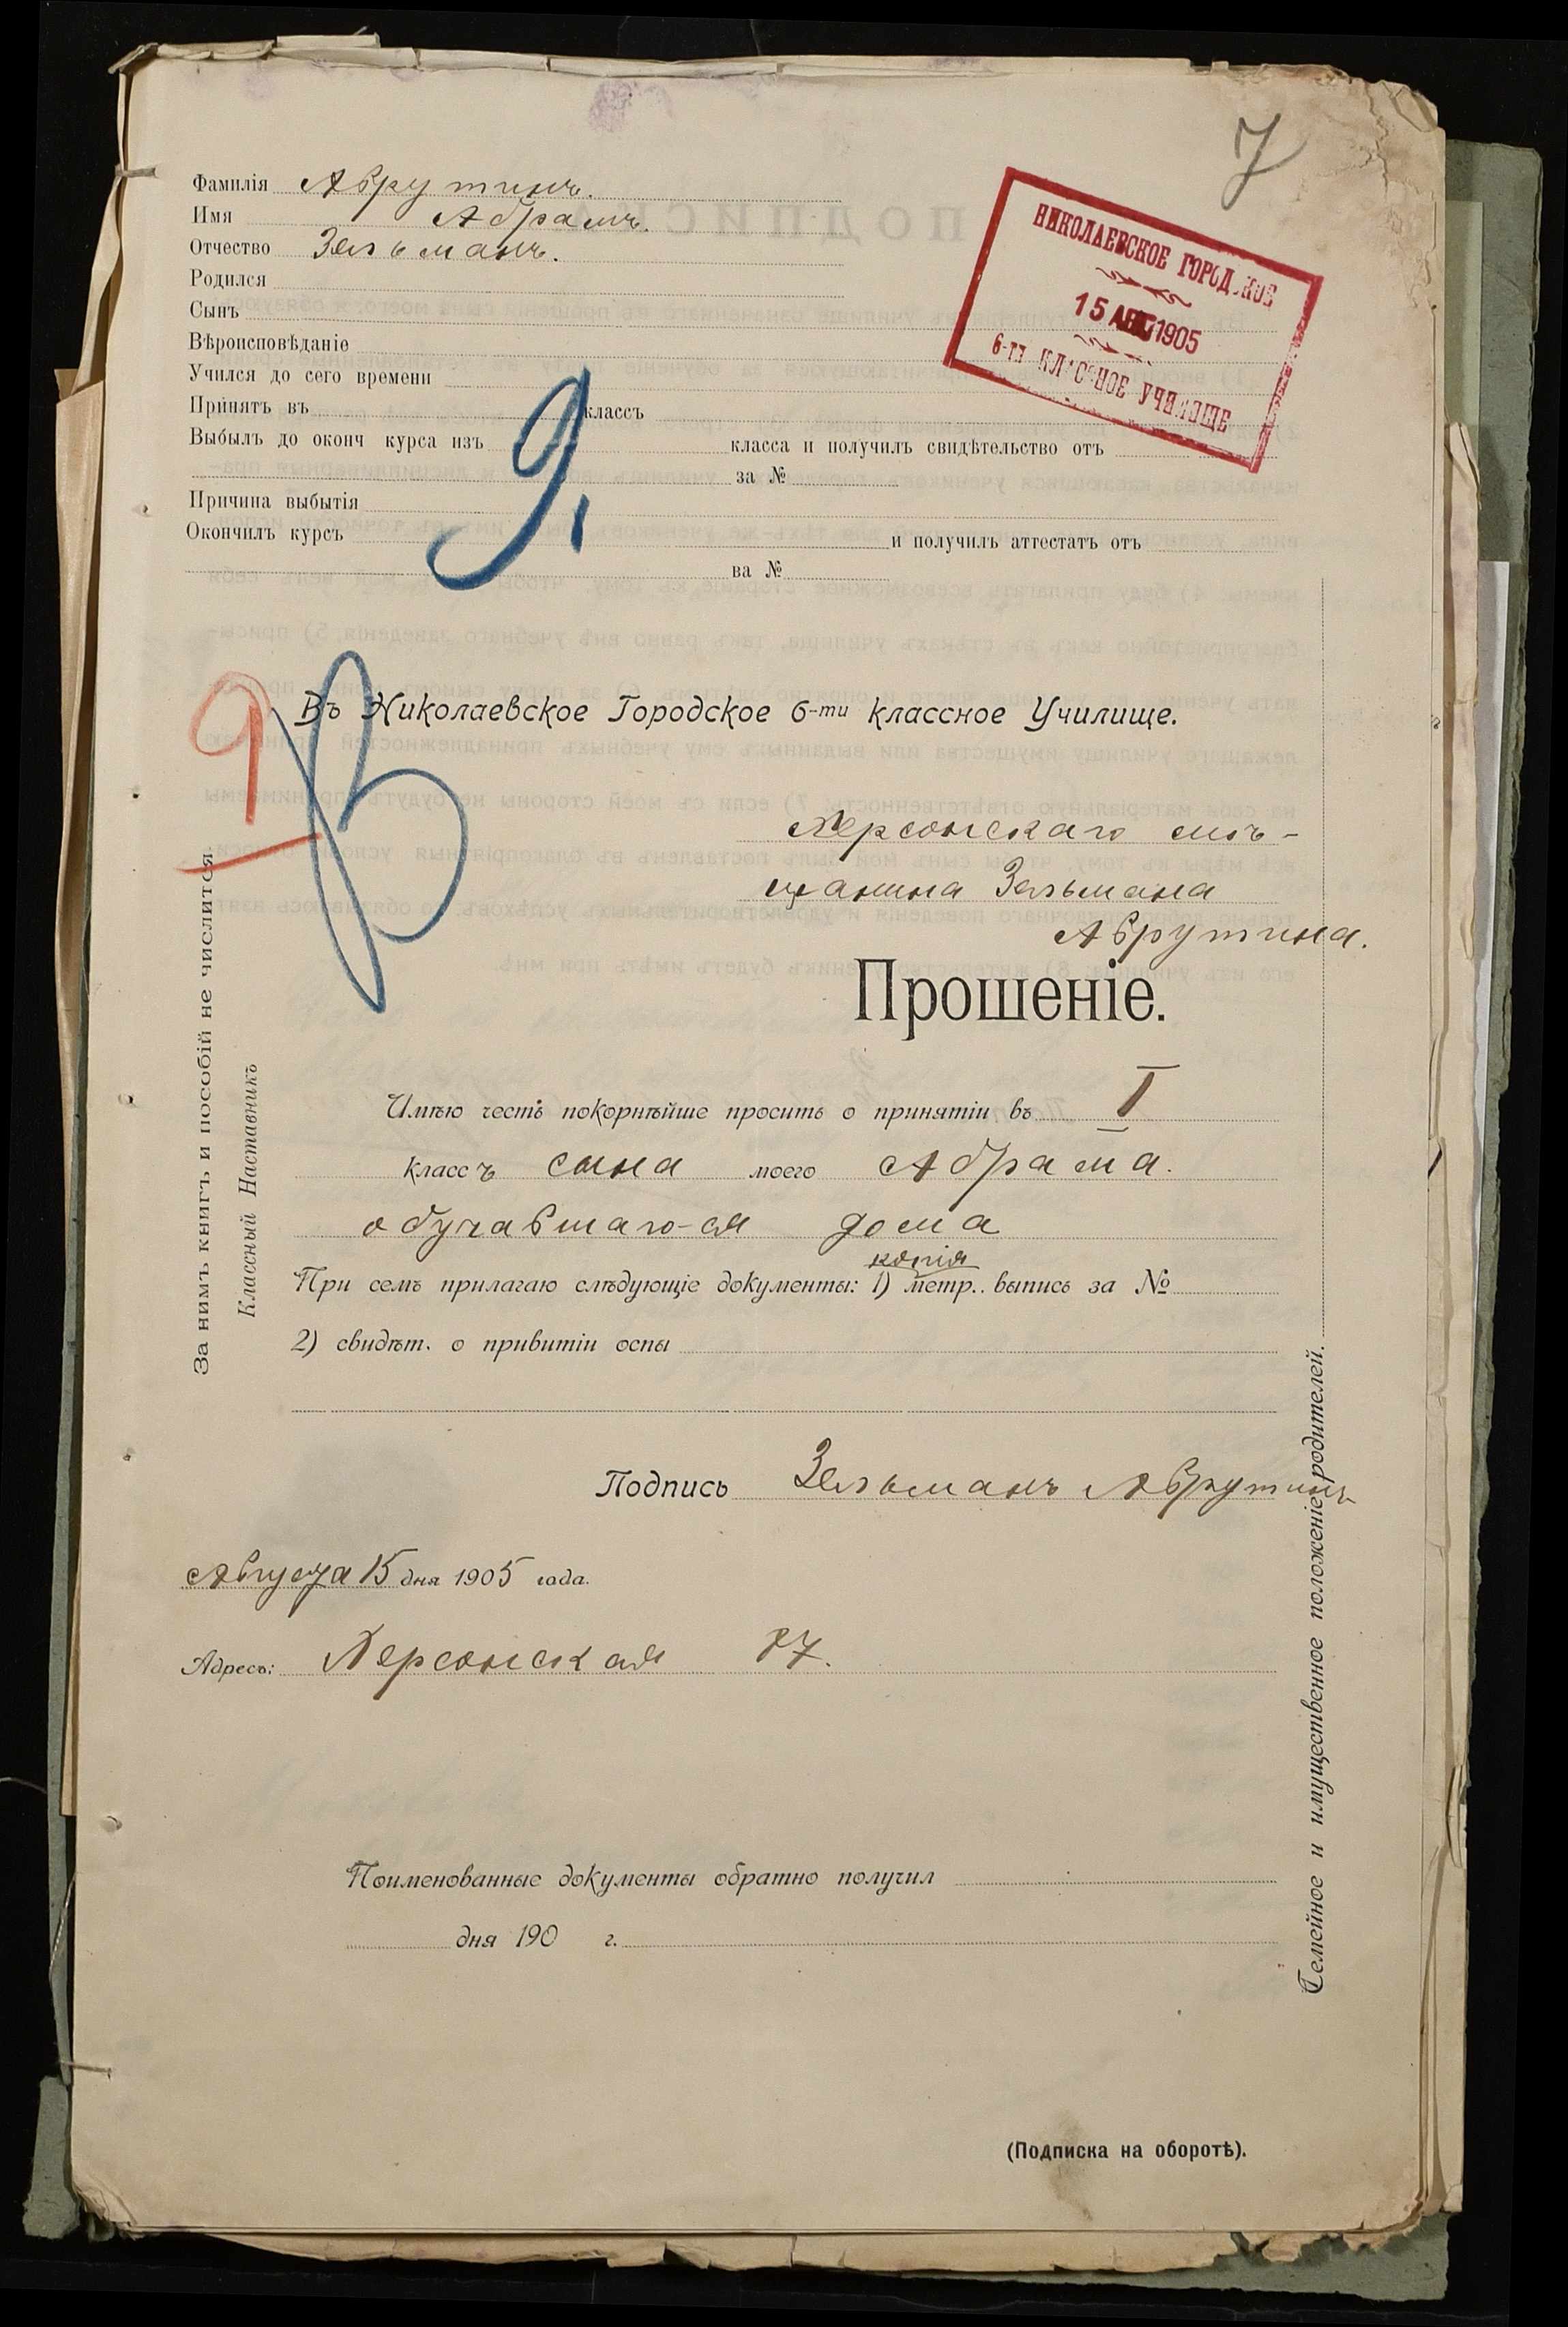 7
Фамилія Аврутинъ.
Имя Абрамъ.
Отчество Зельманъ.
Родился
Сынъ
Вѣроисповѣданіе
Учился до сего времени
Принятъ въ классъ
Выбылъ до оконч курса изъ класса и получилъ свидѣтельство отъ
за №
Причина выбытія
Окончилъ курсъ и получилъ аттестатъ отъ
за №
НИКОЛАЕВСКОЕ ГОРОДСКОЕ
15 АВГ 1905
6-ТИ КЛАССНОЕ УЧИЛИЩЕ
9
Въ Николаевское Городское 6-ти классное Училище.
Херсонскаго мѣ-
щанина Зельмана
Аврутина.
Прошеніе.
Имѣю честь покорнѣйше просить о принятіи въ I
классъ сына моего Абрама.
обучавшаго-ся дома
копія
При семъ прилагаю слѣдующіе документы: 1) метр.. выпись за №
2) свидѣт. о привитіи оспы
Подпись Зельманъ Аврутинъ
Августа 15 дня 1905 года.
Адресъ: Херсонская 87.
Поименованные документы обратно получил
дня 190 г.
(Подписка на оборотѣ).
За нимъ книгъ и пособій не числится
Классный Наставникъ
Семейное и имущественное положеніе родителей.